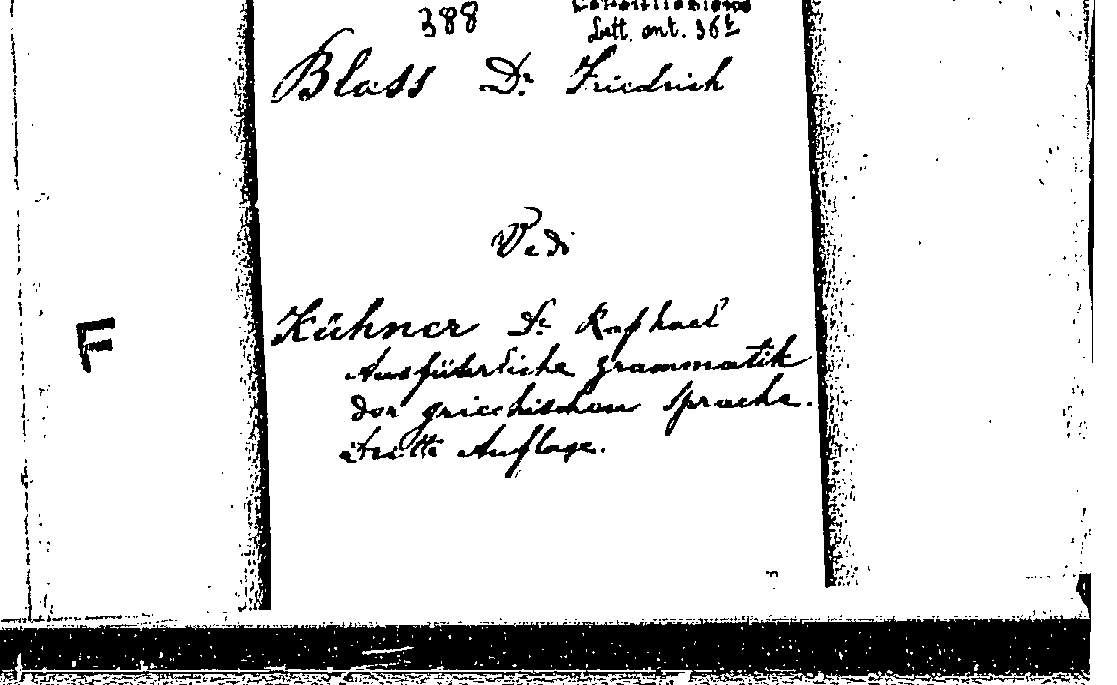 388
Lett. ant. 36t
Blass Dr. Friedrich
Vedi
Kühner Dr. Raphael
Ausführliche grammatik
der griechischen Sprache.
Dritte Auflage.
F